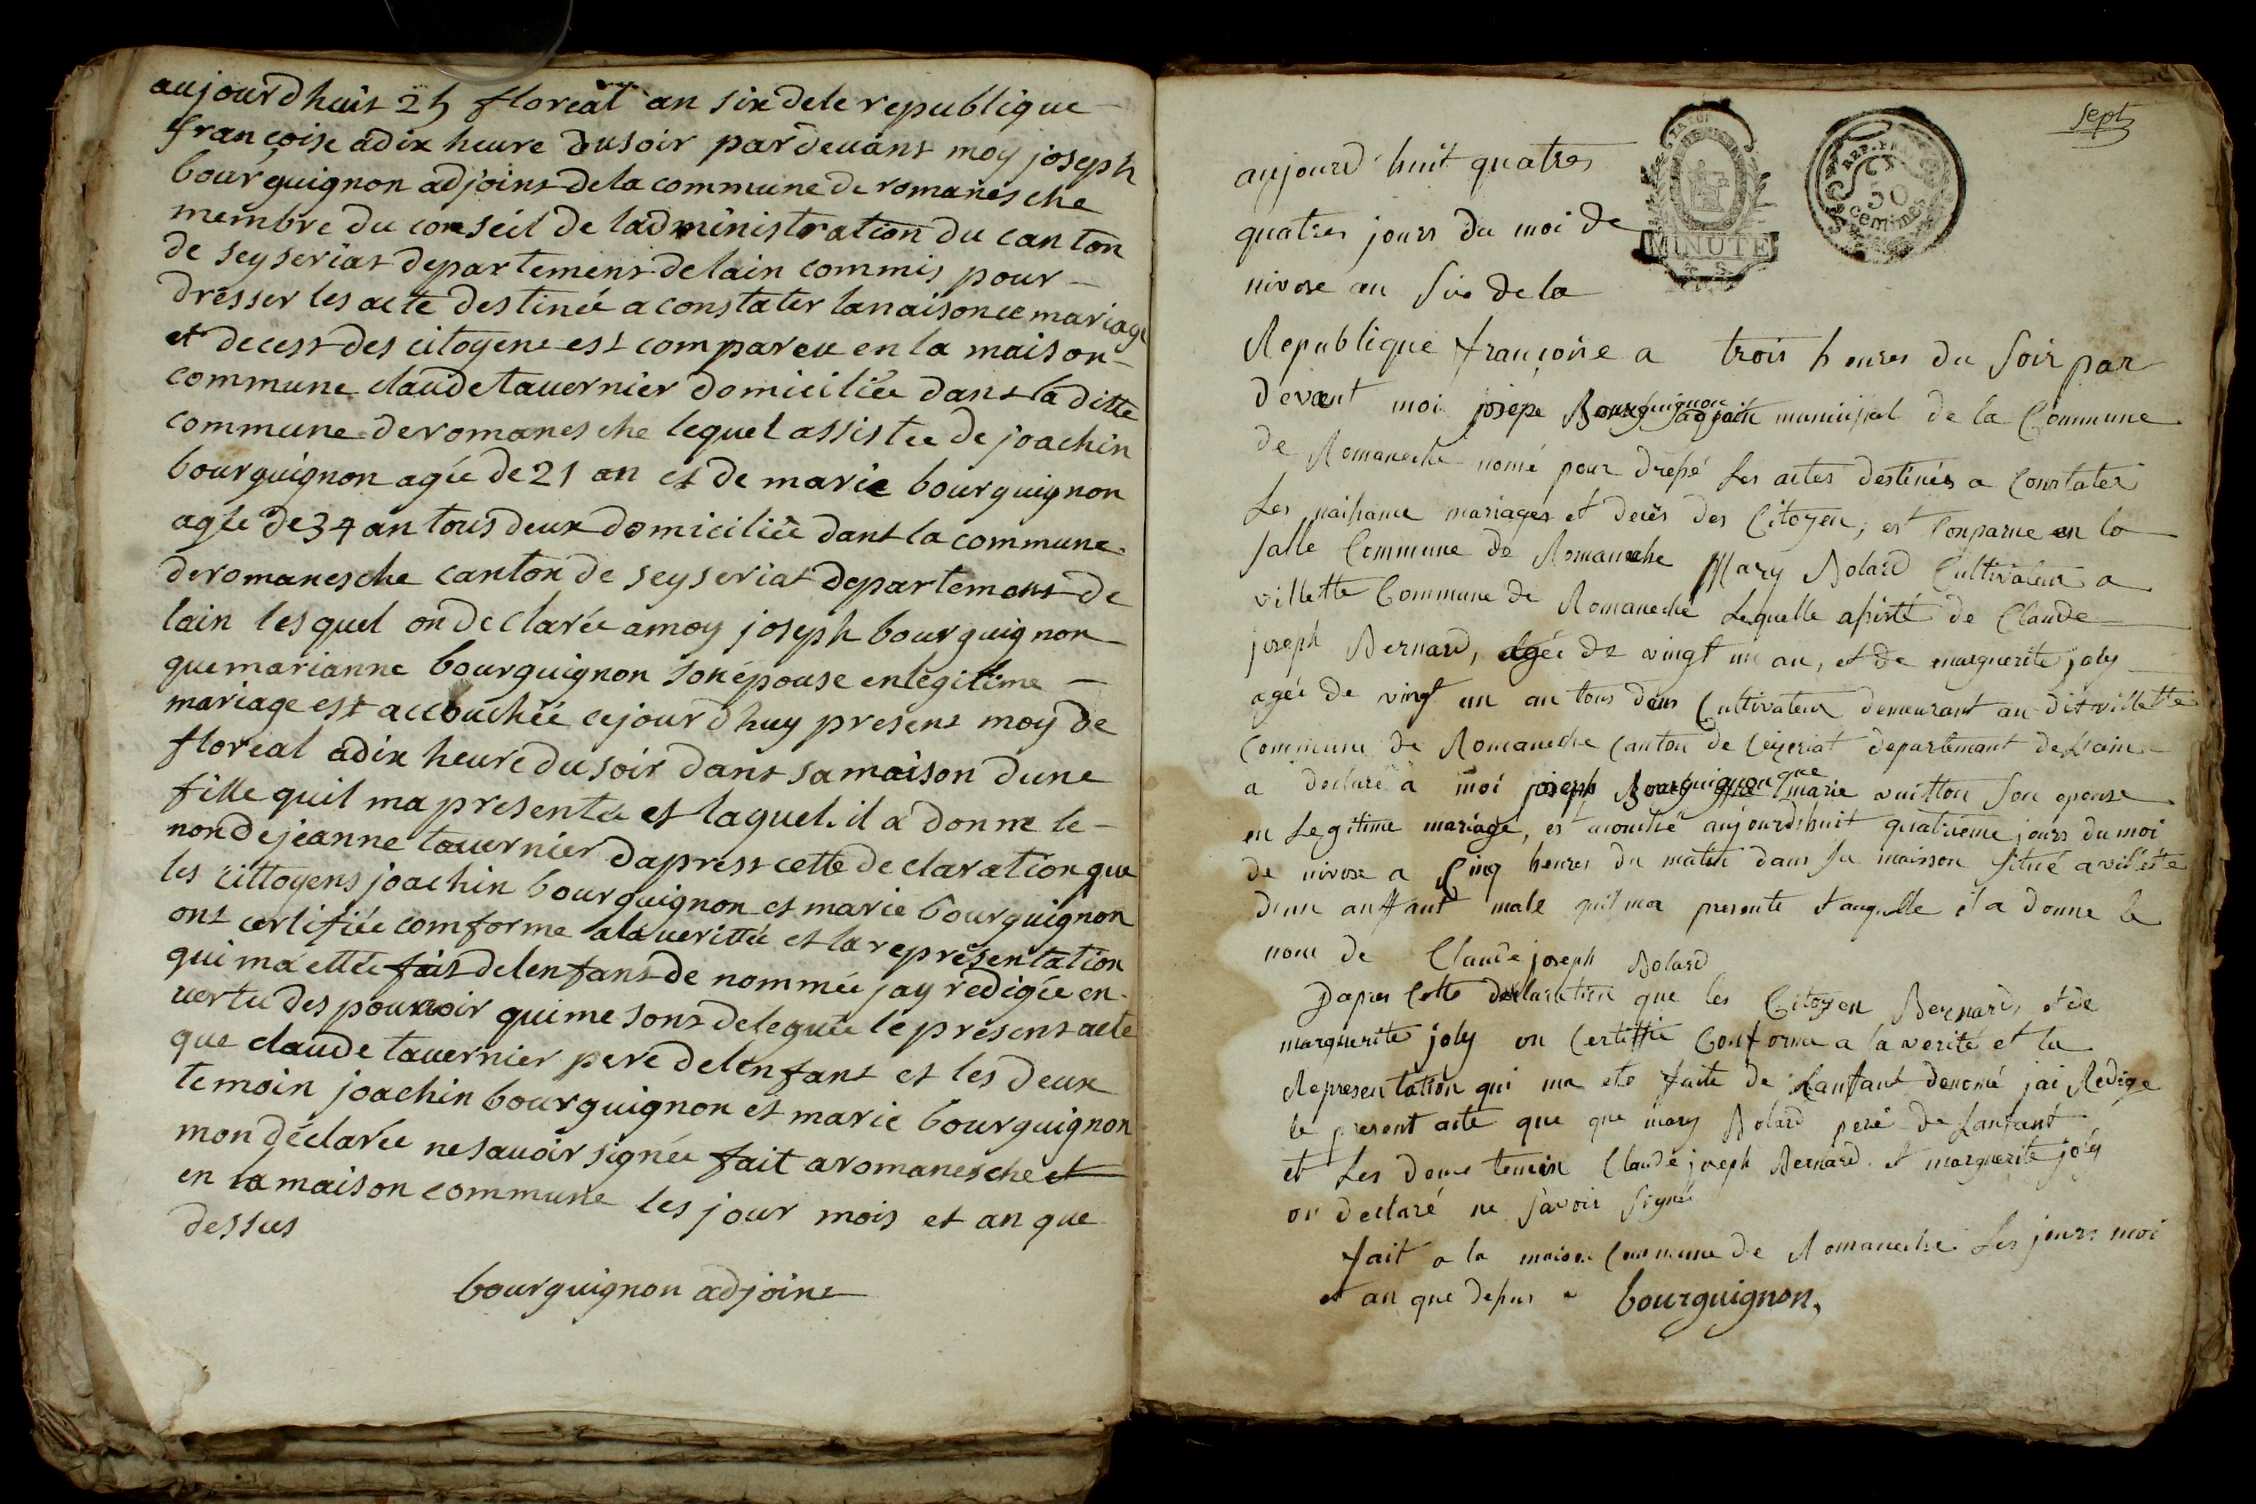 aujourdhuit 25 floreal an six dele republique
françoise adix heure dusoir pardeuant moy joseph
bourguignon adjoint dela commune de romanesche
membre du conseil de ladministration du canton
de seyseriat departement delain commis pour
dresser les acte destinée a constater lanaisonce mariage
et decest des citoyene est compareu en la maison
commune claude tauernier domiciliée dans la ditte
commune deromanesche lequel assistée de joachin
bourguignon agée de 21 an et de marie bourguignon
agée de 34 an tous deux domiciliée dant la commune
deromanesche canton de seyseriat departement de
lain lesquel on declarée amoy joseph bourguignon
que marianne bourguignon son épouse enlegitime
mariage est accouchée cejour dhuy present moy de
floreal adix heure dusoir dans samaison dune
fille quil ma presentée et laquel il a donne le
non de jeanne tauernier daprest cette declaration que
les cittoyens joachin bourguignon et marie bourguignon
ont certifiée comforme ala uerittée et la representation
qui ma ettée fait delenfant de nommée jay redigée en
uertu des pouuoir quime sont deleguée le present acte
que claude tauernier pere delenfant et les deux
temoin joachin bourguignon et marie bourguignon
mon déclarée nesauoir signée fait aromanesche et
en la maison commune les jour mois et an que
dessus
bourguignon adjoint
sept
MINUTE
REP. FRA
50
centimes
aujourd'huit quatres
quatres jours du moi de
nivose an Six de la
Republique françoise a trois heures du Soir par
devant moi josepe Bourguignon adjoint municipal de la Commune
de Romaneche nomé pour dressé Les actes destinés a Constater
Les naissance mariages et decès des Citoyen, est Conparue en la
salle Commune de Romaneche Mary Bolard Cultivateur a
villette Commune de Romaneche Lequelle assisté de Claude
joseph Bernard, agée de vingt un an, et de marguerite joly
agée de vingt un an tous deus Cultivateur demeurant au dit villette
Commune de Romaneche Canton de Ceyzeriat departemant de Lain
a declaré à moi joseph Bourguignon que marie vuitton Son epouse
en Legitime mariage, est acouché aujourdhuit quatrieme jours du moi
de nivose a Cinq heures du matin dans Sa maison Situé a villette
dunn anffant male quil ma presente Laquelle il a donne le
nom de Claude joseph Bolard
Dapres Cette declaration que les Citoyen Bernard, et de
marguerite joly on Certiffie Conforme a la verité et la
Representation qui ma ete faite de Lanfant denomé jai Redige
le present acte que que mary Bolard peré de Lanfant
et Les deux temoin Claude joseph Bernard et marguerite joly
on declaré ne savoir Signée
fait a la maison Commune de Romaneche Les jours moi
et an que depus bourguignon